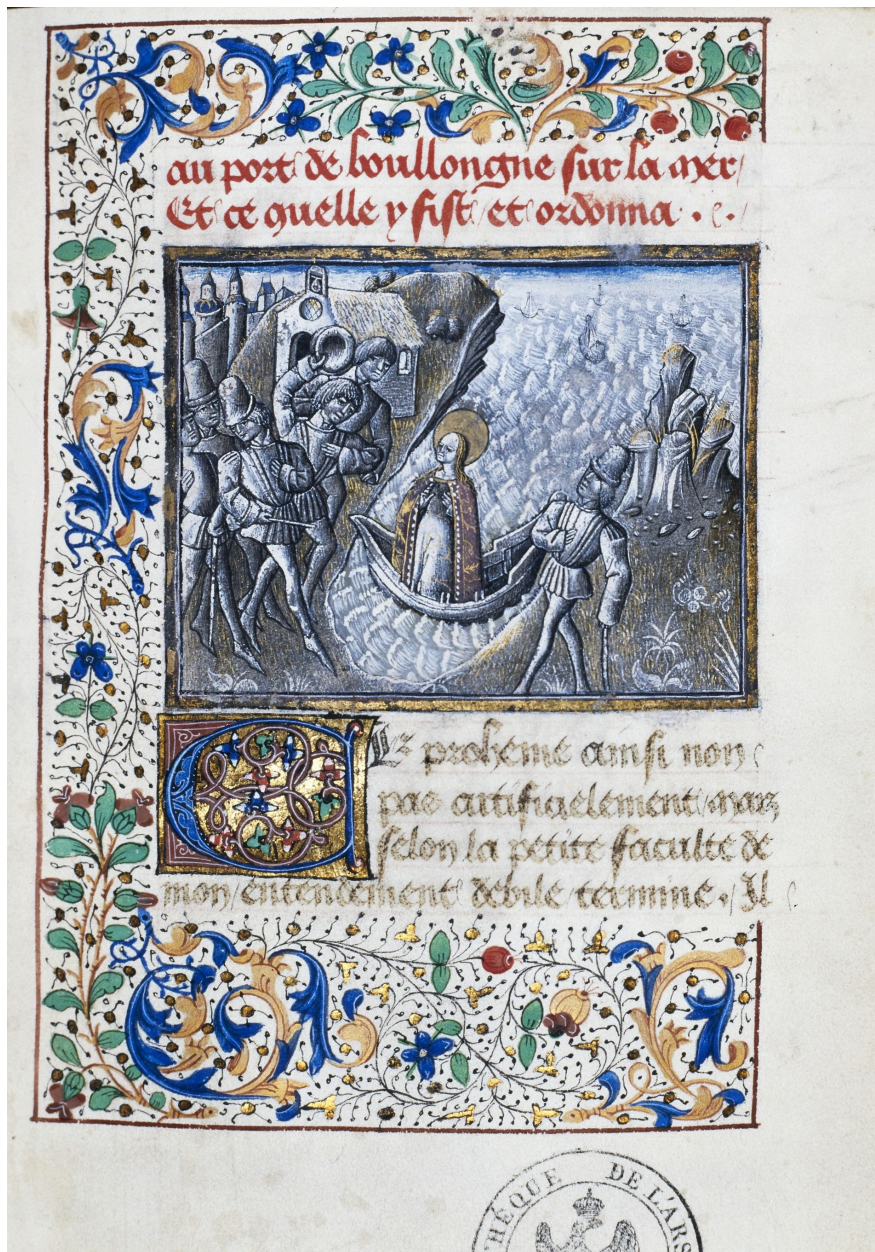 au port de boullongne sur la mer/
Et ce quelle y fist/ et ordonna . .
Cez proheme ainsi non
pas artificielement/ mais
selon la petite faculte de
mon/ entendement debile/ termine ./ Il
HÈQUE DE L'ARS